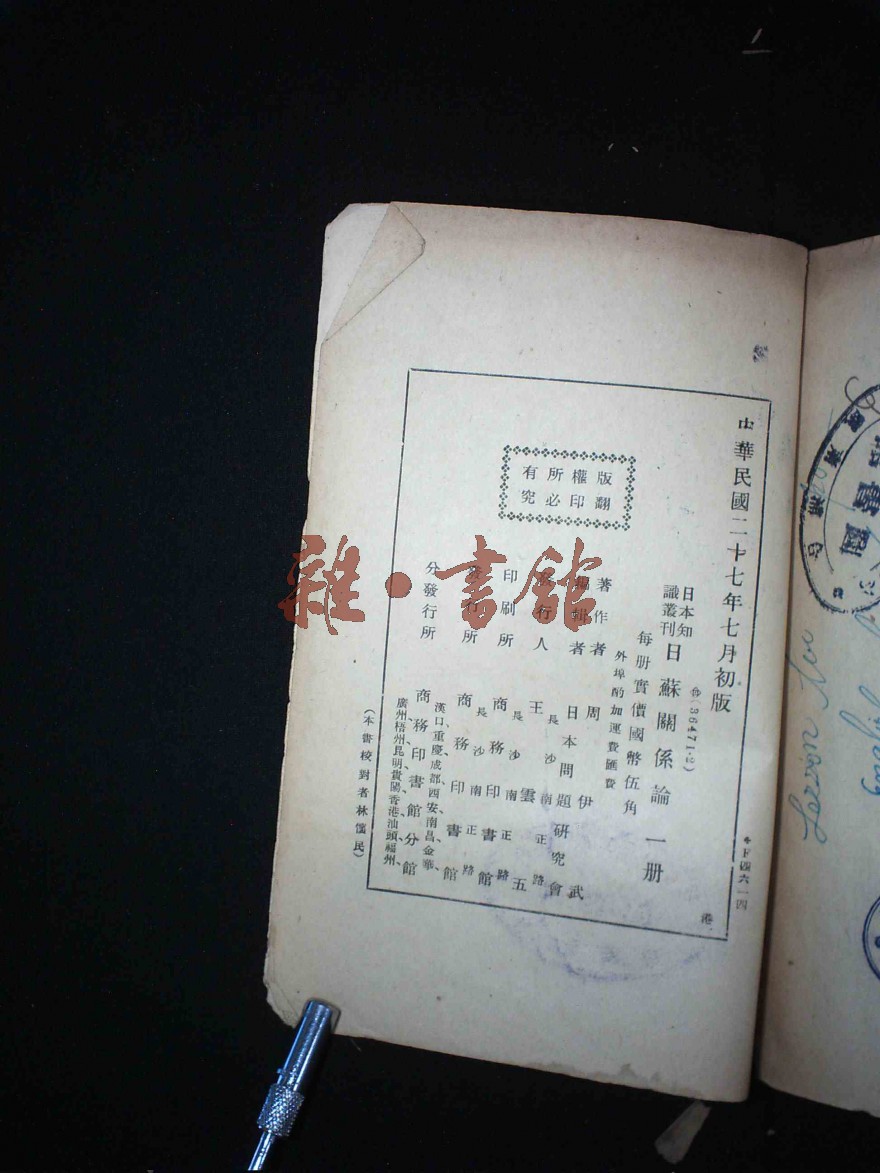 中華民國二十七年七月初版
(36471·2)
日本知
識叢刊
日蘇關係論 一册
每册實價國幣伍角
外埠酌加運費匯費
版權所有
翻印必究
著作者 周伊武
編輯者 日本問題研究會
發行人 王雲五
長沙南正路
印刷所 商務印書館
長沙南正路
發行所 商務印書館
長沙南正路
分發行所 商務印書館分館
漢口、重慶、成都、西安、南昌、金華、
廣州、梧州、昆明、貴陽、香港、汕頭、福州、
(本書校對者林儒民)
港
雜·書館